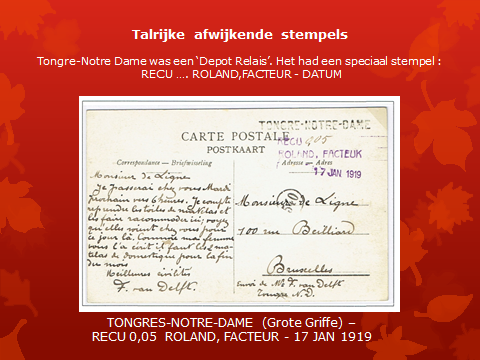 Talrijke afwijkende stempels
Tongre-Notre Dame was een ‘Depot Relais’. Het had een speciaal stempel :
RECU .... ROLAND,FACTEUR - DATUM
TONGRE-NOTRE-DAME
CARTE POSTALE
POSTKAART
RECU 0,05
ROLAND, FACTEUR
Correspondance — Briefwisseling
Adresse — Adres
17 JAN 1919
Monsieur de Ligne
Je passerai chez vous Mardi
prochain vers 6 heures. Je compte
reprendre les toiles de matelas et
les faire raccommoder ici; voyez
qu'elles soient chez vous pour
ce jour là. Comme ma femme
vous l'a écrit il faut les 2 ma-
telas de domestique pour la fin
du mois.
Meilleures civilités
F. van Delft.
Monsieur de Ligne
100 rue Belliard
Bruxelles
Envoi de Mr F. van Delft
Tongre N.D.
TONGRES-NOTRE-DAME (Grote Griffe) –
RECU 0,05 ROLAND, FACTEUR - 17 JAN 1919